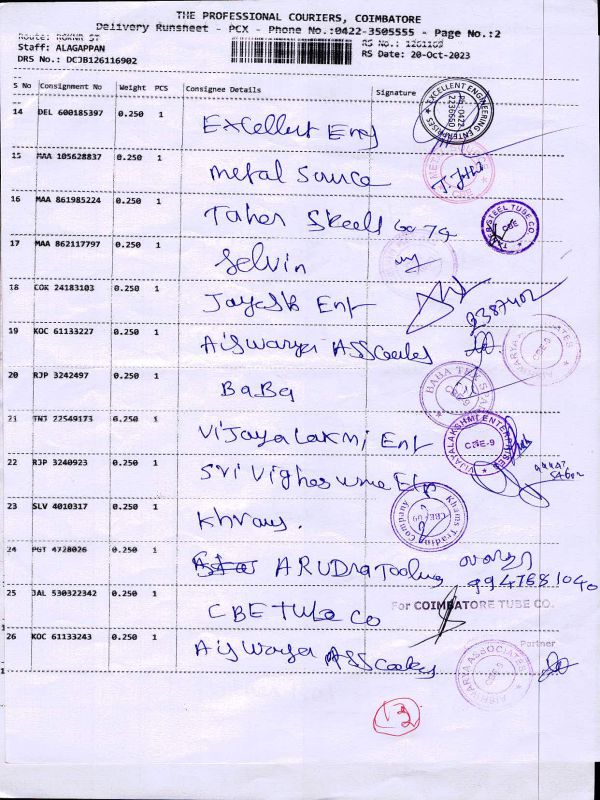 THE PROFESSIONAL COURIERS, COIMBATORE
Delivery Runsheet - PCX - Phone No.:0422-3505555 - Page No.:2
Route: RGKNR ST
RS No.: 1261169
Staff: ALAGAPPAN
RS Date: 20-Oct-2023
DRS No.: DCJB126116902
S No Consignment No Weight PCS Consignee Details Signature
14 DEL 600185397 0.250 1 Excellent Eng
EXCELLENT ENGINEERING ENTERPRISES
15 MAA 105628837 0.250 1 metal Source
16 MAA 861985224 0.250 1 Taher Steell
TAHER STEEL TUBE CO. CBE
17 MAA 862117797 0.250 1 Selvin
18 COK 24183103 0.250 1 Jayesh Ent
19 KOC 61133227 0.250 1 Aiswarya Asscoates
AISHWARYA ASSOCIATES CBE-9
20 RJP 3242497 0.250 1 BaBa
BABA CBE-9
21 TNJ 22549173 6.250 1 Vijaya Lakmi Ent
VIJAYALAKSHMI ENTERPRISES CBE-9
22 RJP 3240923 0.250 1 Sri Vighes
23 SLV 4010317 0.250 1 Khrays.
Khams Trading Company CBE-9
24 PGT 4728026 0.250 1 ARUDra Tooling
25 JAL 530322342 0.250 1 CBE Tube Co
For COIMBATORE TUBE CO.
Partner
26 KOC 61133243 0.250 1 Aiswarya Asscoates
AISHWARYA ASSOCIATES CBE-9
13